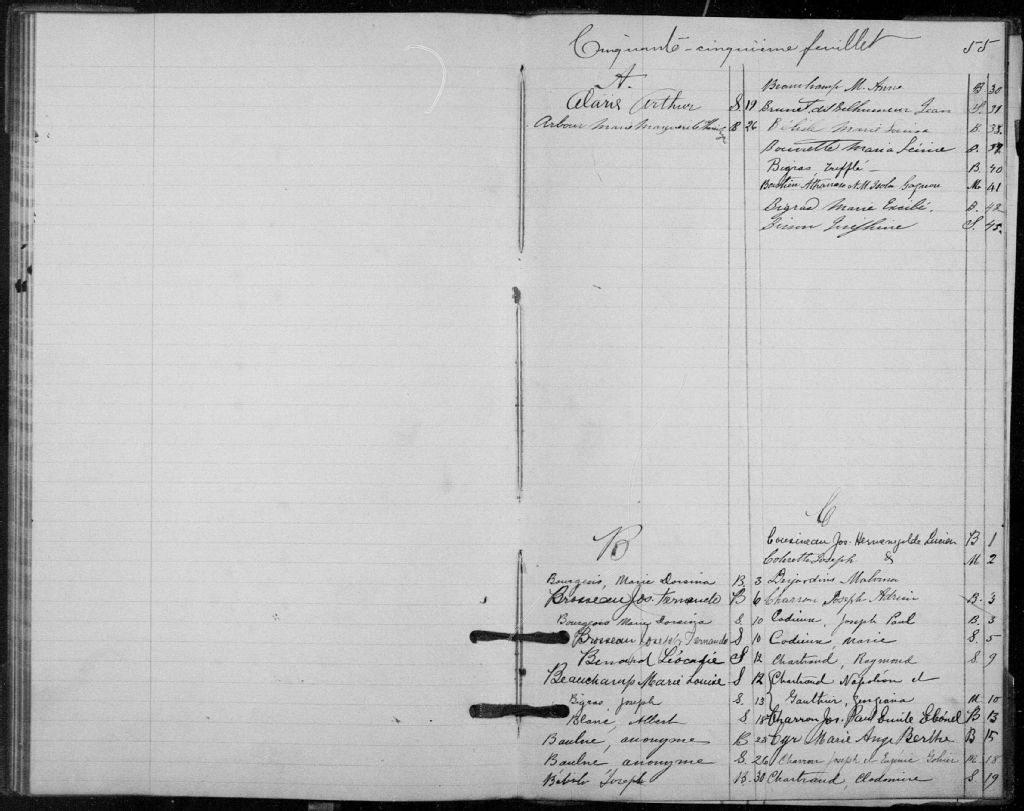 Cinquante-cinquième feuillet 55
A.
Alarie Arthur S 19
Arbour Marie Marguerite B. 26
B
Bourgeois, Marie Dorsina B. 3
Brosseau Jos. Fernando B 6
Bourgeois Marie Dorsina S 10
Brosseau Joseph Fernando S 10
Benard Léocadie S 12
Beauchamp Marie Louise S 12
Bigras, Joseph S. 13
Blanc, Albert S 15
Baulne, anonyme B 25
Baulne anonyme S. 26
Joseph B. 30
Beauchamp M. Anne B 30
Brunet dit Belhumeur Jean S. 31
Bélisle Marie Louisa B. 33.
Maria B. 37.
Bigras Trefflé B. 40
Athanase & M. Gagnon M. 41
Bigras Marie B. 42
Bisson Joséphine S. 45.
C
Cousineau Jos. Hermenégilde Lucien B 1
Joseph & M 2
Desjardins Malvina
Charron Joseph Adrien B. 3
Codieux, Joseph Paul B. 3
Codieux, Marie S. 5
Chartrand, Raymond S. 9
Chartrand Napoléon et
Gauthier, Georgiana M. 10
Charron Jos. Paul Emile B 13
Cyr Marie Ange Berthe B 15
Charron Joseph et Eugénie Gohier M. 18
Chartrand, Clodomire S 19